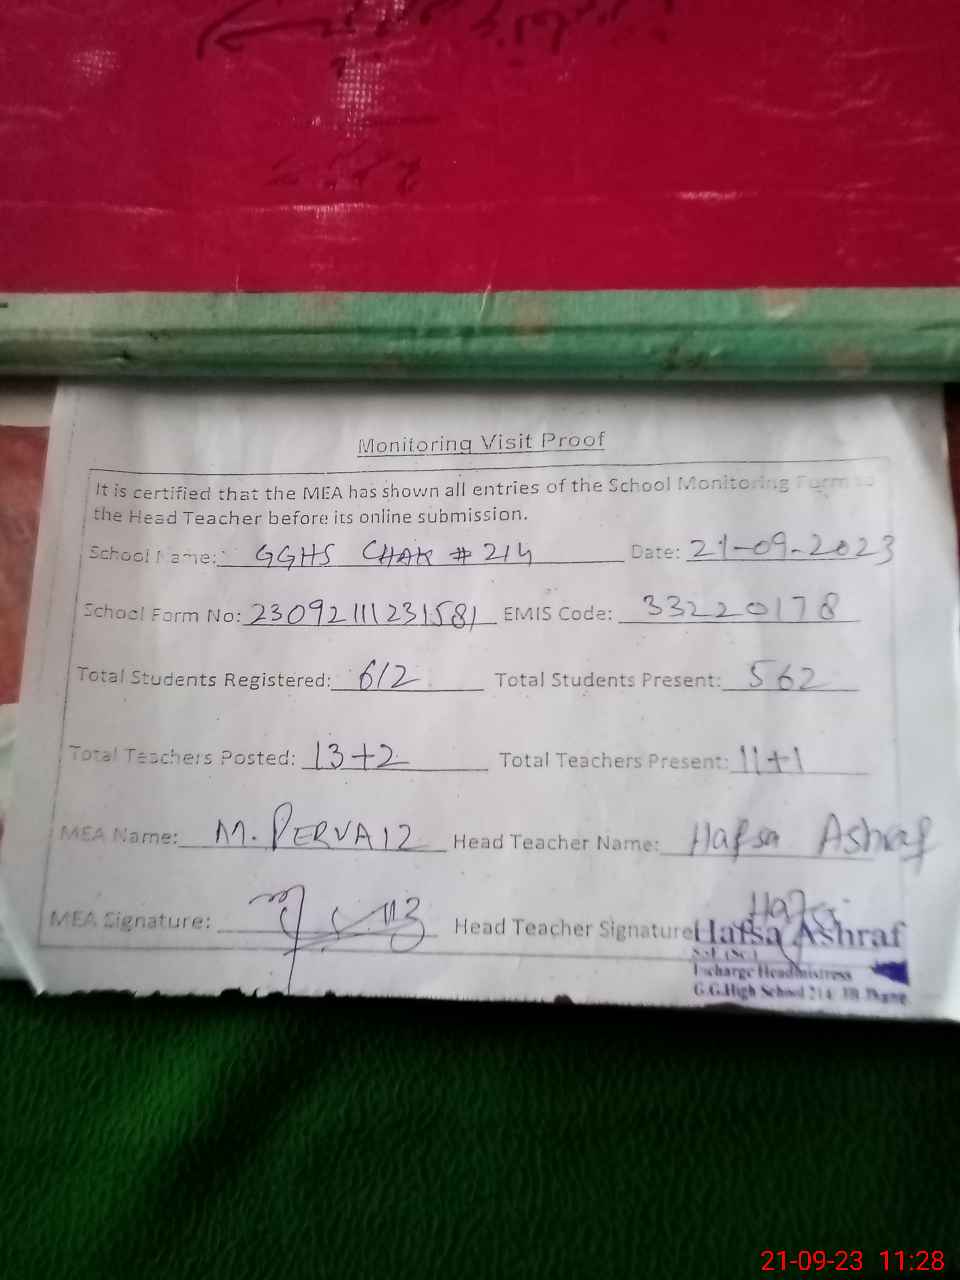 Monitoring Visit Proof
It is certified that the MEA has shown all entries of the School Monitoring Form to
the Head Teacher before its online submission.
School Name: GGHS CHAK # 214 Date: 21-09-2023
School Form No: 23092111231581 EMIS Code: 33220178
Total Students Registered: 612 Total Students Present: 562
Total Teachers Posted: 13+2 Total Teachers Present: 11+1
MEA Name: M. PERVAIZ Head Teacher Name: Hafsa Ashraf
MEA Signature: Head Teacher Signature Hafsa
Hafsa Ashraf
Incharge Headmistress
G.G.High School 214 JB Jhang
21-09-23 11:28